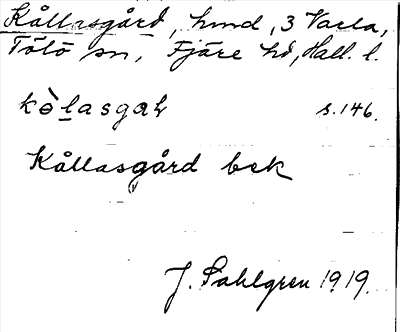 Kållasgård, hmd, 3 Varla,
Tölö sn, Fjäre hd, Hall. l.
kò̱lasgaɦ s.146.
Kållasgård bek
J. Sahlgren 1919.